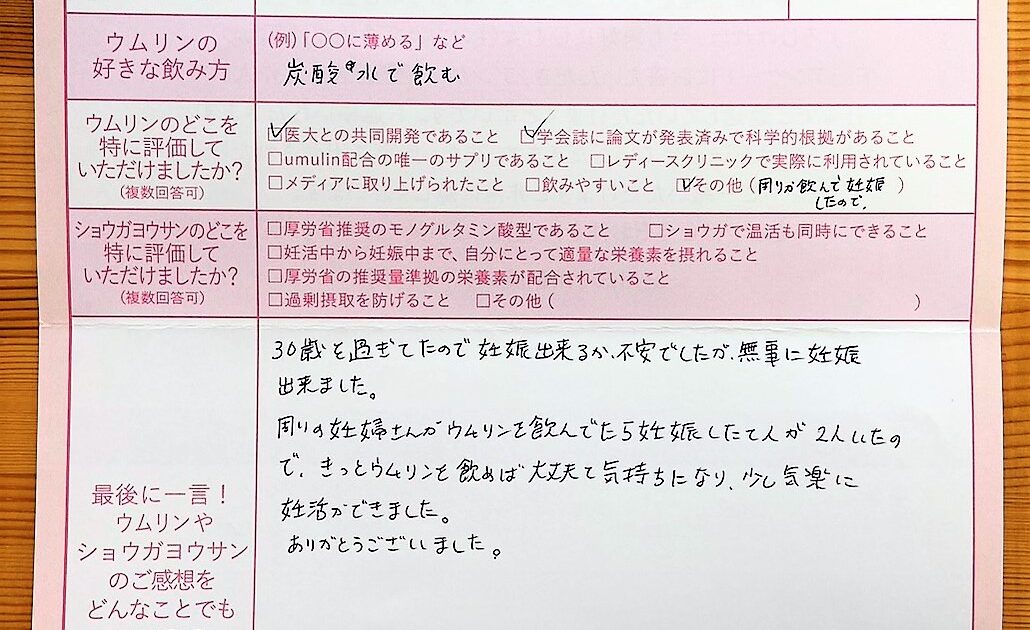 ウムリンの
好きな飲み方
(例)「〇〇に薄める」など
炭酸水で飲む
ウムリンのどこを
特に評価して
いただけましたか?
(複数回答可)
☑医大との共同開発であること ☑学会誌に論文が発表済みで科学的根拠があること
□umulin配合の唯一のサプリであること □レディースクリニックで実際に利用されていること
□メディアに取り上げられたこと □飲みやすいこと ☑その他(周りが飲んで妊娠
したので。)
ショウガヨウサンのどこを
特に評価して
いただけましたか?
(複数回答可)
□厚労省推奨のモノグルタミン酸型であること □ショウガで温活も同時にできること
□妊活中から妊娠中まで、自分にとって適量な栄養素を摂れること
□厚労省の推奨量準拠の栄養素が配合されていること
□過剰摂取を防げること □その他( )
最後に一言!
ウムリンや
ショウガヨウサン
のご感想を
どんなことでも
30歳を過ぎてたので妊娠出来るか、不安でしたが、無事に妊娠
出来ました。
周りの妊婦さんがウムリンを飲んでたら妊娠したて人が2人いたの
で、きっとウムリンを飲めば大丈夫て気持ちになり、少し気楽に
妊活ができました。
ありがとうございました。